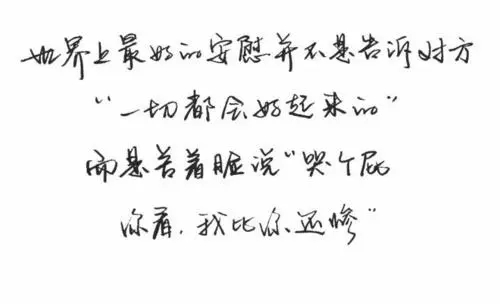 世界上最好的安慰并不是告诉对方
“一切都会好起来的”
而是苦着脸说“哭个屁
你看,我比你还惨”